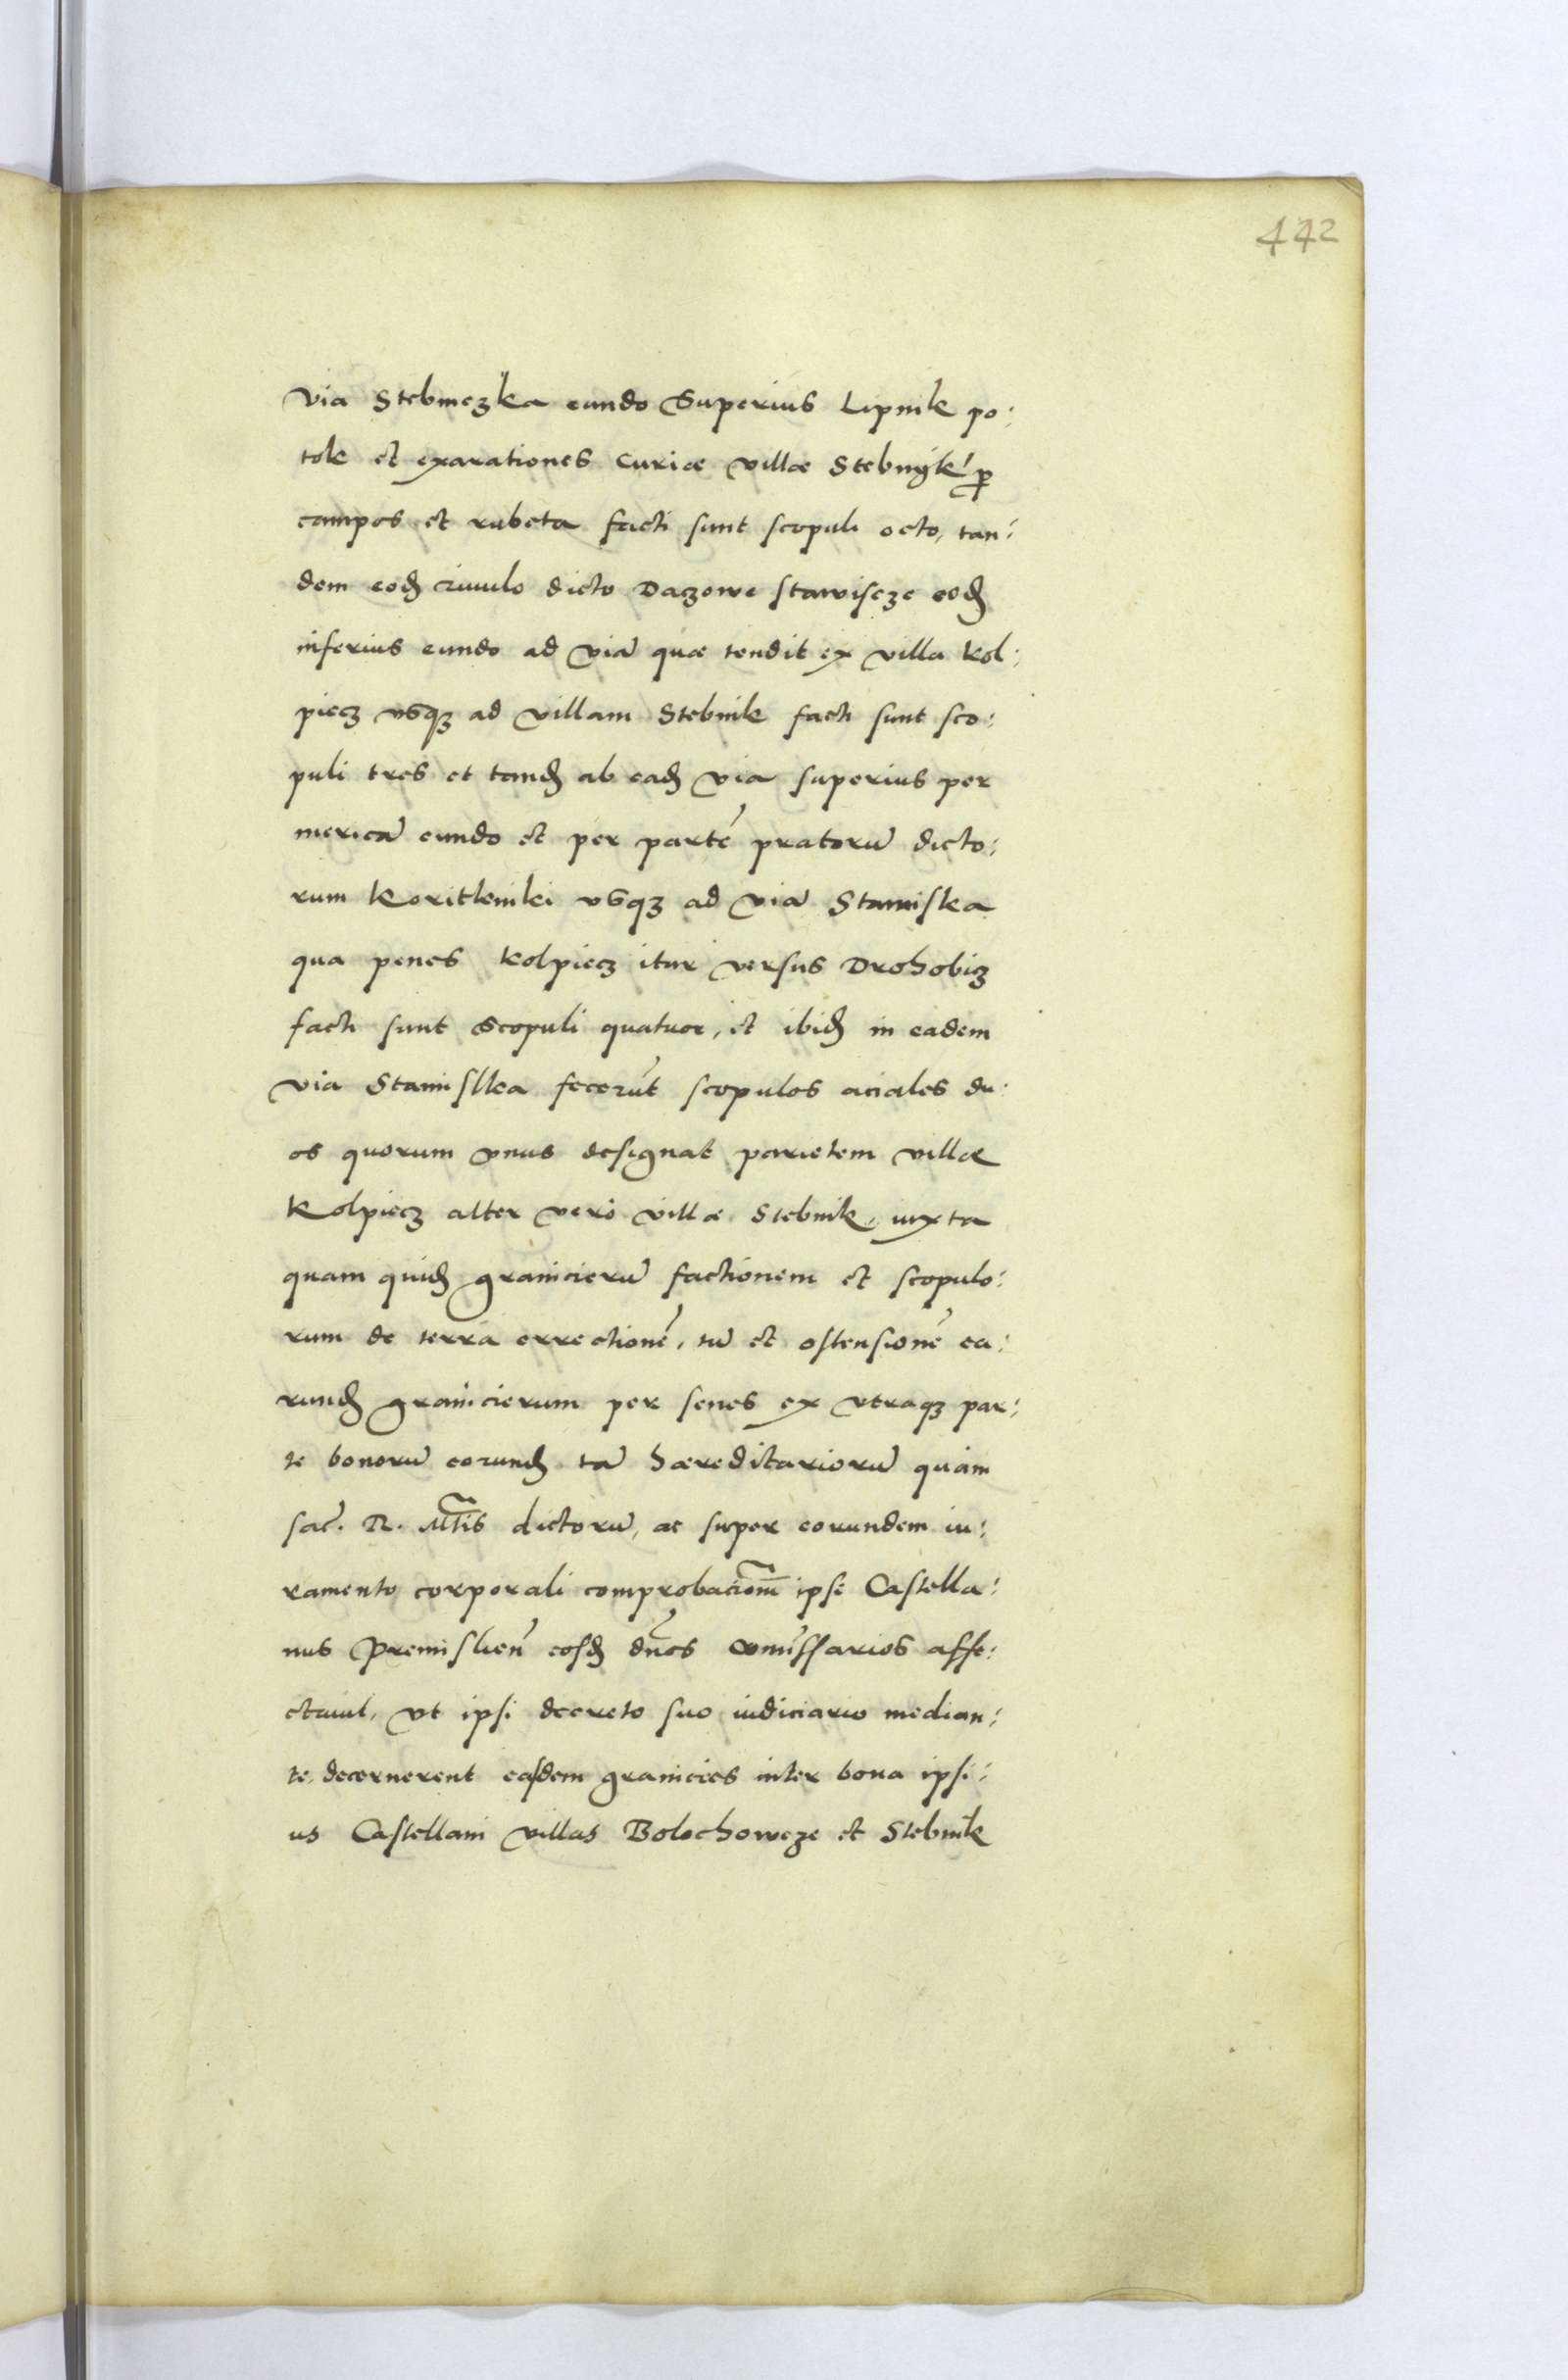 442
via Stebniczka eundo Superius Lipnik po:
tok et exarationes Curiæ villæ Stebnÿk ꝑ
campos et rubeta facti sunt scopuli octo, tan:
dem eodꝫ riuulo dicto Daczowe stawiscze eodꝫ
inferius eundo ad viā quæ tendit ex villa Kol:
piecz vsqꝫ ad villam Stebnik facti sunt sco:
puli tres et tandꝫ ab eadꝫ via superius per
mericā eundo et per partē pratorū dicto:
rum Koritleniki vsqꝫ ad viā Stanislka
qua penes Kolpiecz itur versus Drohobicz
facti sunt Scopuli quatuor, et ibidꝫ in eadem
via Stanislka fecerūt scopulos aciales du:
os quorum vnus designat parietem villæ
Kolpiecz alter verò villæ Stebnik, iuxta
quam quidꝫ granicierū factionem et scopulo:
rum de terra errectionē, tū et ostensionē ea:
rundꝫ granicierum per senes ex vtraqꝫ par:
te bonorū eorundꝫ tā hæreditariorū quàm
sac̄. R. Mtis dictorū, ac super eorundem iu:
ramento corporali comprobacionē ipse Castella:
nus Premislien̄ eosdꝫ dn̄os com̄issarios affe:
ctauit, vt ipsi decreto suo iudiciario median:
te, decernerent easdem granicies inter bona ipsi:
us Castellani villas Bolechowcze et Stebnik